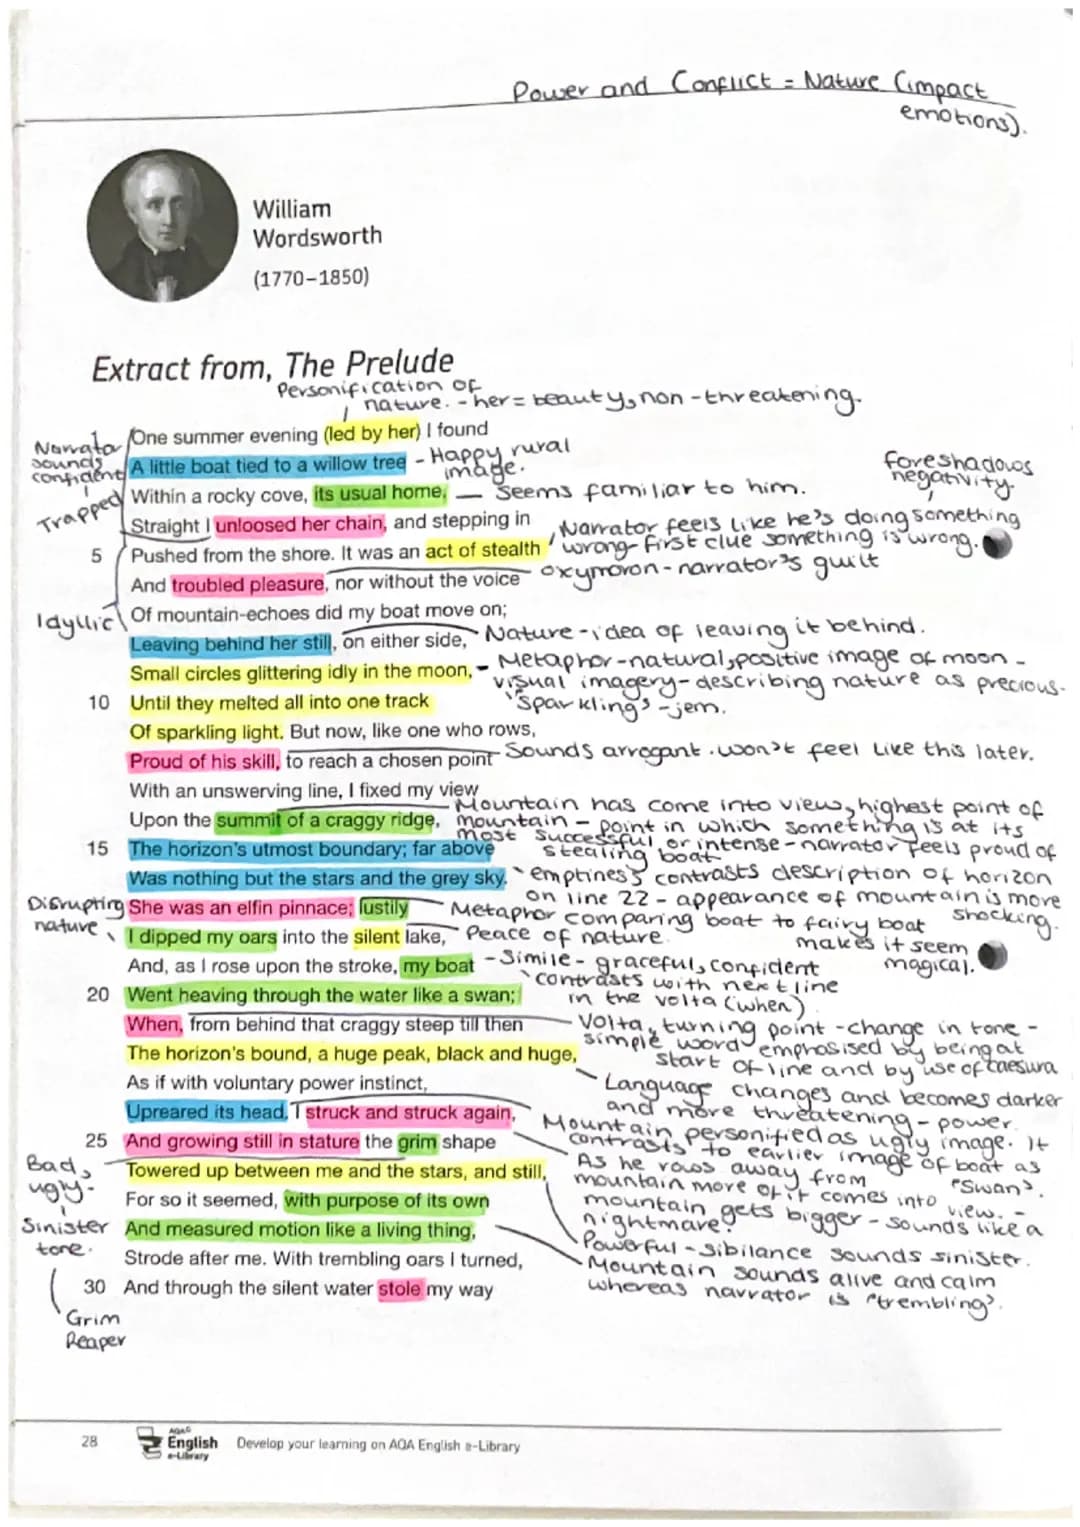 Power and Conflict = Nature (impact
emotions).
William
Wordsworth
(1770–1850)
Extract from, The Prelude
Personification of
nature. - her = beauty, non-threatening.
One summer evening (led by her) I found
Narrator
sounds
confident
A little boat tied to a willow tree
- Happy rural
image.
Within a rocky cove, its usual home,
— Seems familiar to him.
foreshadows
negativity.
Trapped
Straight I unloosed her chain, and stepping in
5 Pushed from the shore. It was an act of stealth
Narrator feels like he's doing something
wrong - first clue something is wrong.
And troubled pleasure, nor without the voice
oxymoron - narrator's guilt
Idyllic
Of mountain-echoes did my boat move on;
Leaving behind her still, on either side,
Nature - idea of leaving it behind.
Small circles glittering idly in the moon,
- Metaphor - natural, positive image of moon -
visual imagery - describing nature as precious -
'sparkling' - jem.
10 Until they melted all into one track
Of sparkling light. But now, like one who rows,
Proud of his skill, to reach a chosen point
Sounds arrogant. won't feel like this later.
With an unswerving line, I fixed my view
Upon the summit of a craggy ridge,
Mountain has come into view, highest point of
mountain - point in which something is at its
most successful or intense - narrator feels proud of
stealing boat
15 The horizon's utmost boundary; far above
Was nothing but the stars and the grey sky.
'emptines's contrasts description of horizon
on line 22 - appearance of mountain is more
shocking.
Disrupting
nature
She was an elfin pinnace; lustily
Metaphor comparing boat to fairy boat
makes it seem
magical.
I dipped my oars into the silent lake,
Peace of nature.
And, as I rose upon the stroke, my boat
- Simile - graceful, confident
contrasts with next line
in the volta (when)
20 Went heaving through the water like a swan;
When, from behind that craggy steep till then
Volta, turning point - change in tone -
simple word emphasised by being at
start of line and by use of caesura
The horizon's bound, a huge peak, black and huge,
As if with voluntary power instinct,
Language changes and becomes darker
and more threatening - power.
Upreared its head. I struck and struck again,
Mountain personified as ugly image. It
contrasts to earlier image of boat as
"swan".
25 And growing still in stature the grim shape
As he rows away from
mountain more of it comes into view. -
mountain gets bigger - sounds like a
nightmare!
Bad,
ugly.
Sinister
tone.
Grim
Reaper
Towered up between me and the stars, and still,
For so it seemed, with purpose of its own
Powerful - Sibilance sounds sinister.
And measured motion like a living thing,
Mountain sounds alive and calm
whereas navrrator is "trembling".
Strode after me. With trembling oars I turned,
30 And through the silent water stole my way
28
AQA
English
e-Library
Develop your learning on AQA English e-Library